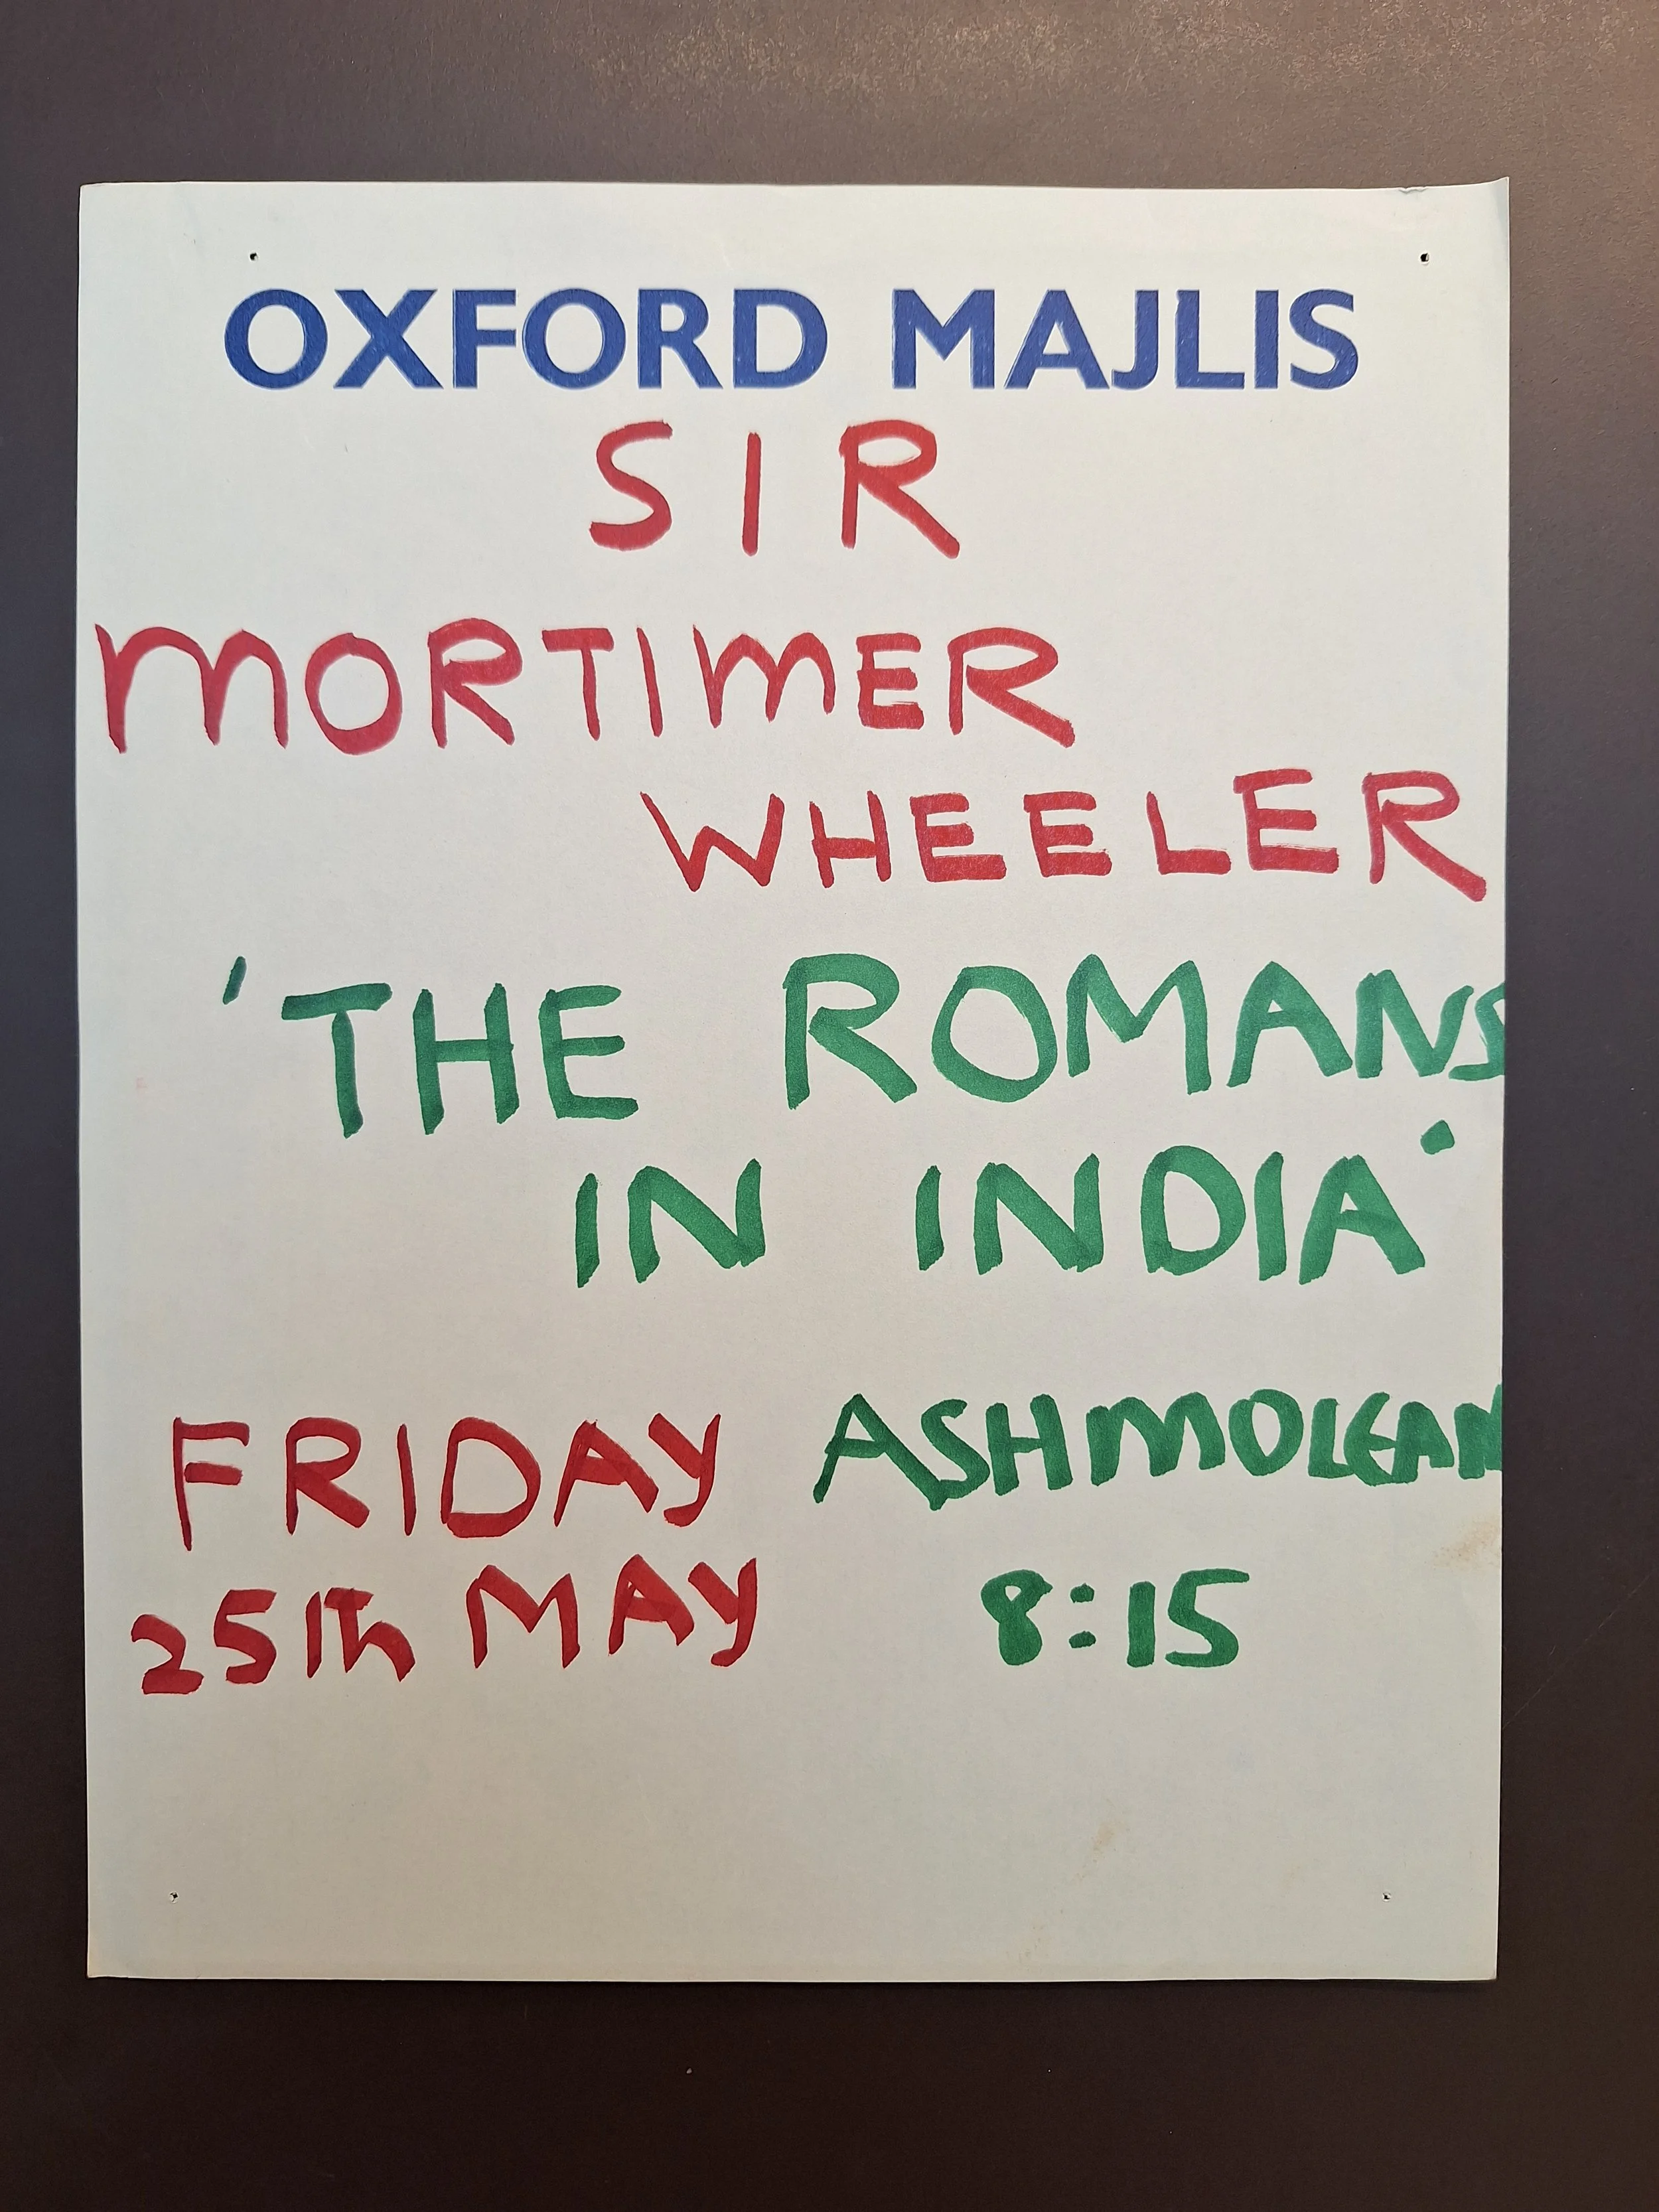 OXFORD MAJLIS
SIR
MORTIMER
WHEELER
'THE ROMANS
IN INDIA'
FRIDAY ASHMOLEAN
25Th MAY 8:15